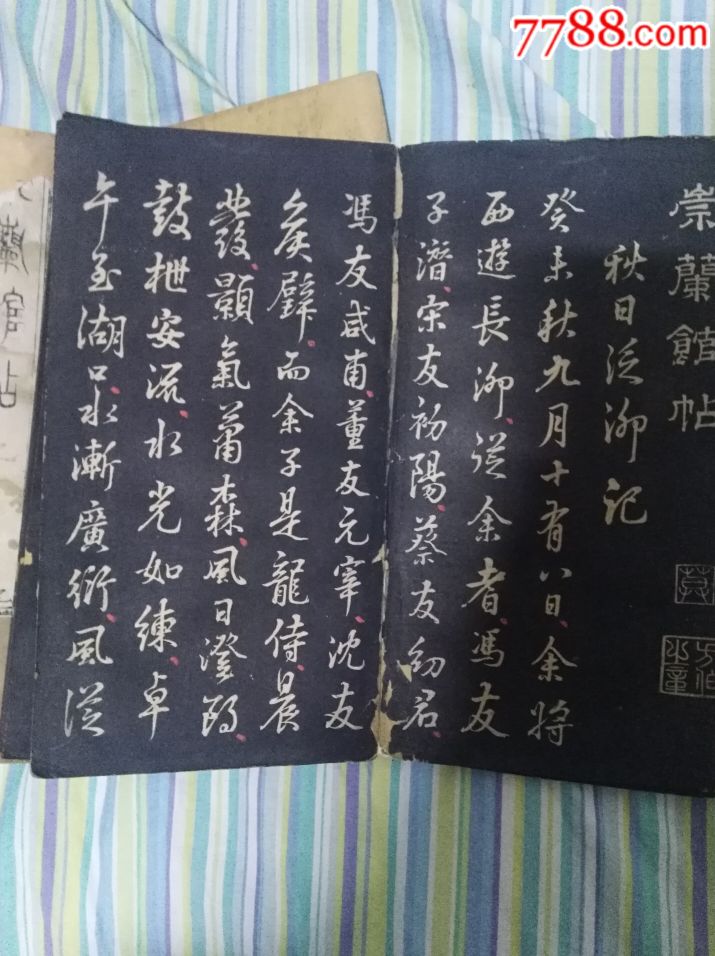 7788.com
崇蘭館帖
秋日泛泖記
癸未秋九月十有八日余將
西遊長泖從余者馮友
子潛宋友初陽蔡友幼君
馮友咸甫董友元宰沈友
矦璧而余子是龍侍晨
發顥氣蕭森風日澄朗
鼓枻安流水光如練卓
午至湖口水漸廣衍風從
蘭帖